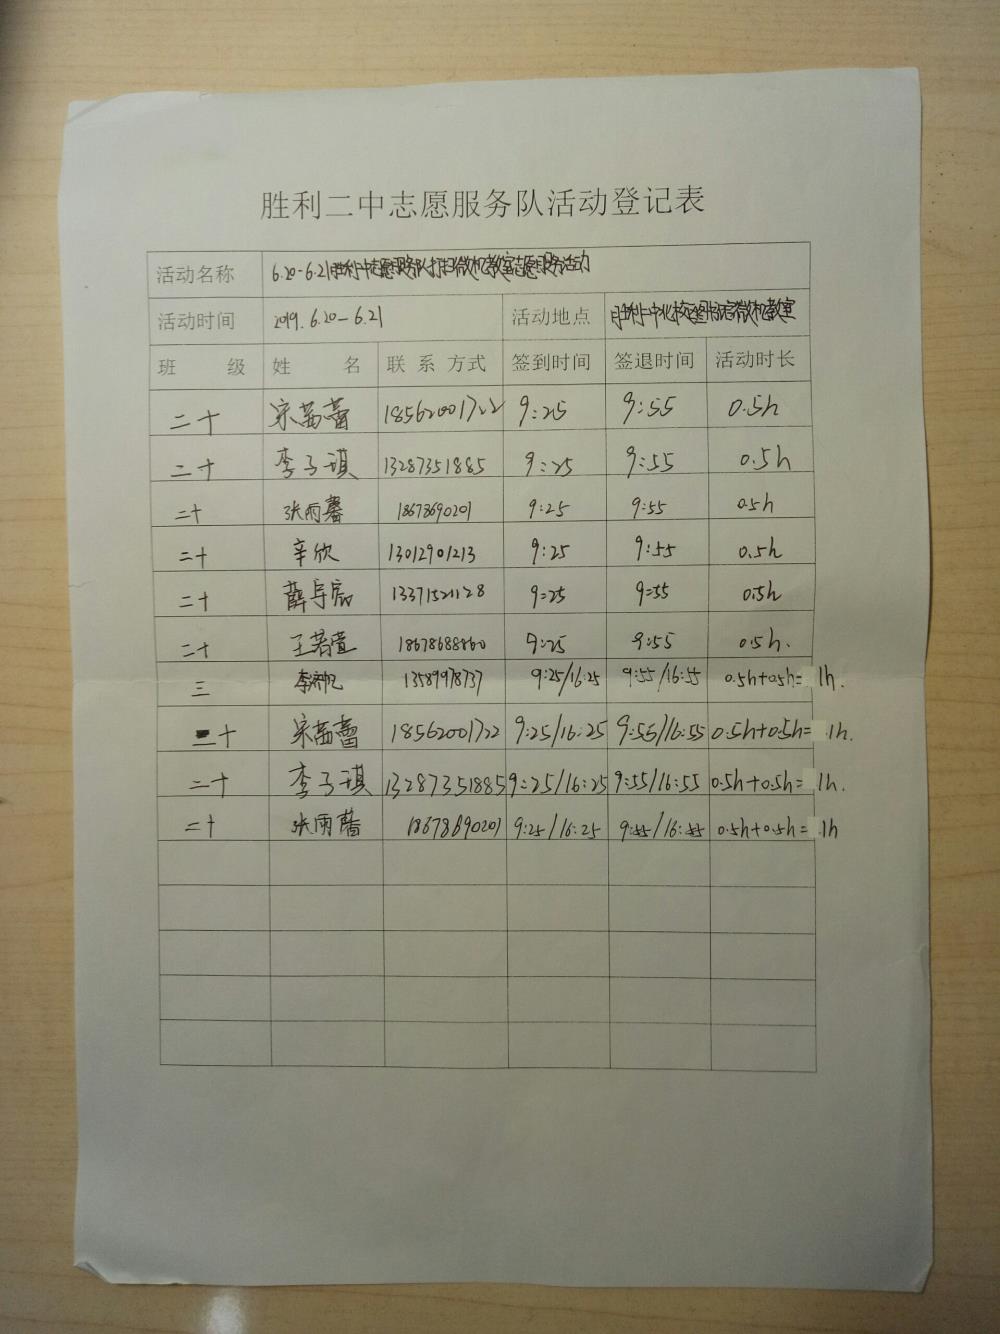 胜利二中志愿服务队活动登记表
活动名称 6.20-6.21胜利二中志愿服务队打扫微机教室志愿服务活动
活动时间 2019.6.20-6.21 活动地点 胜利二中北校区图书馆微机教室
班 级 姓 名 联 系 方式 签到时间 签退时间 活动时长
二十 宋茜蕾 18562001722 9:25 9:55 0.5h
二十 李子琪 13287351885 9:25 9:55 0.5h
二十 张雨馨 18678690201 9:25 9:55 0.5h
二十 辛欣 13012901213 9:25 9:55 0.5h
二十 薛宇宸 13371521128 9:25 9:55 0.5h
二十 王若萱 18678688860 9:25 9:55 0.5h.
三 13589978737 9:25/16:25 9:55/16:55 0.5h+0.5h=1h.
二十 宋茜蕾 18562001722 9:25/16:25 9:55/16:55 0.5h+0.5h=1h.
二十 李子琪 13287351885 9:25/16:25 9:55/16:55 0.5h+0.5h=1h.
二十 张雨馨 18678690201 9:25/16:25 9:55/16:55 0.5h+0.5h=1h